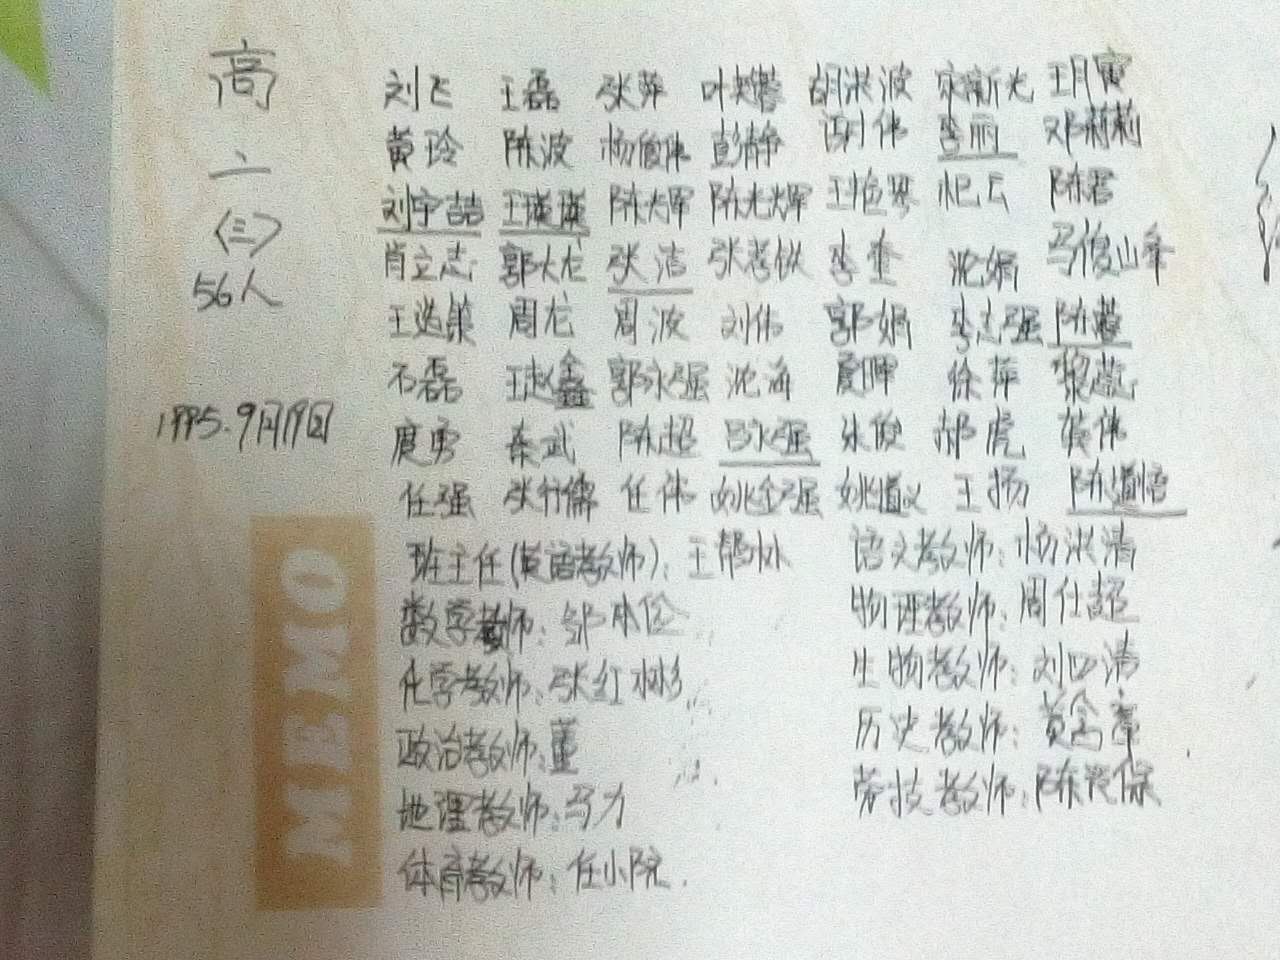 高
二
〈三〉
56人
1995.9月19日
刘飞 王磊 张萍 胡洪波 王月寅
黄玲 陈波 杨俊伟 彭静 谢伟 李丽 邓莉莉
刘宇喆 王瑛瑛 陈大军 陈光辉 陈君
肖立志 郭大龙 张洁 张孝钦 李奎 沈娟 马俊山
周龙 周波 刘伟 郭娟 李志强 陈燕
石磊 王赵鑫 郭永强 沈海 夏晖 徐萍
庹勇 秦武 陈超 吕永强 朱俊 郝虎
任强 张竹儒 任伟 姚金强 姚道义 王扬 陈道悟
班主任(英语教师): 王帮林 语文教师: 杨洪清
数学教师: 物理教师: 周仕超
化学教师: 张红彬 生物教师: 刘四清
政治教师: 董 历史教师: 黄金章
地理教师: 马力 劳技教师: 陈
体育教师: 任小院.
MEMO